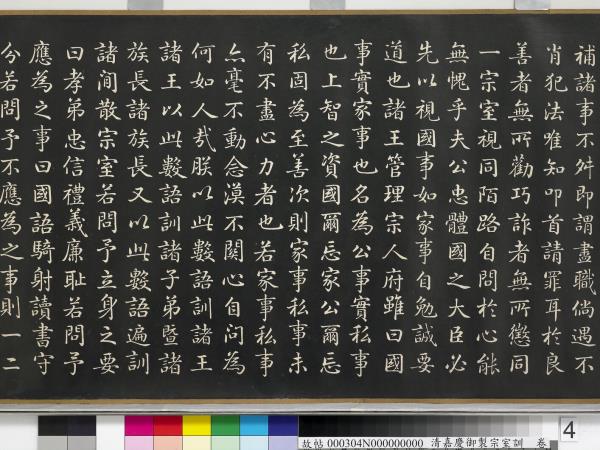 補諸事不舛即謂盡職倘遇不
肖犯法唯知叩首請罪耳於良
善者無所勸巧詐者無所懲同
一宗室視同陌路自問於心能
無愧乎夫公忠體國之大臣必
先以視國事如家事自勉誠要
道也諸王管理宗人府雖曰國
事實家事也名為公事實私事
也上智之資國爾忘家公爾忘
私固為至善次則家事私事未
有不盡心力者也若家事私事
亦毫不動念漠不關心自問為
何如人哉朕以此數語訓諸王
諸王以此數語訓諸子弟暨諸
族長諸族長又以此數語遍訓
諸閒散宗室若問予立身之要
曰孝弟忠信禮義廉恥若問予
應為之事曰國語騎射讀書守
分若問予不應為之事則一二
故帖 000304N000000000 清嘉慶御製宗室訓 卷
4